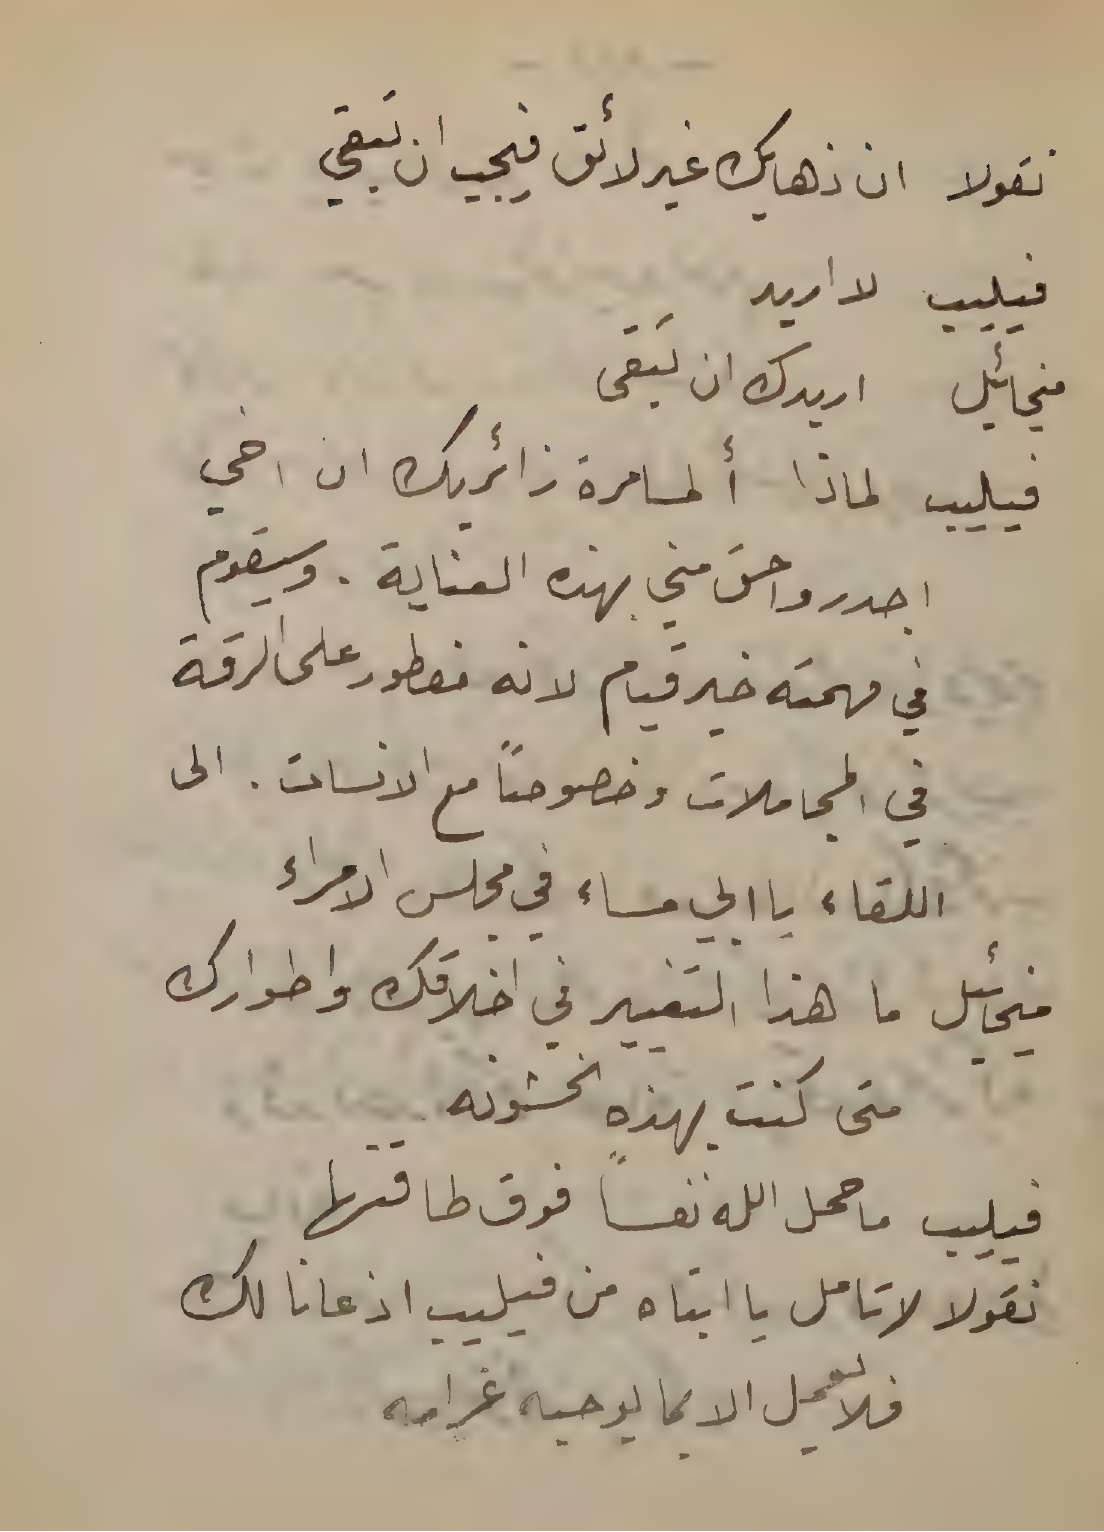 نقولا ان ذهابك غير لائق فيجب ان تبقي
فيليب لا اريد
ميخائيل اريدك ان تبقى
فيليب لماذا ألمسامرة زائريك ان اخي
اجدر واحق مني بهذه العناية . وسيقوم
في مهمته خير قيام لانه مفطور على الرقة
في المجاملات وخصوصاً مع الانسات . الى
اللقاء يا ابي مساء في مجلس الامراء
ميخائيل ما هذا التغيير في اخلاقك واطوارك
متى كنت بهذه الخشونه
فيليب ما حمل الله نفساً فوق طاقتها
نقولا لا تامل يا ابتاه من فيليب اذعانا لك
فلا يعمل الا بما يوحيه غرامه